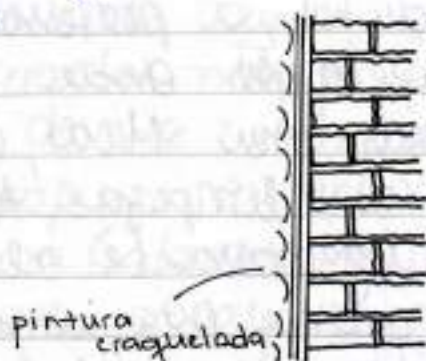 pintura
craquelada